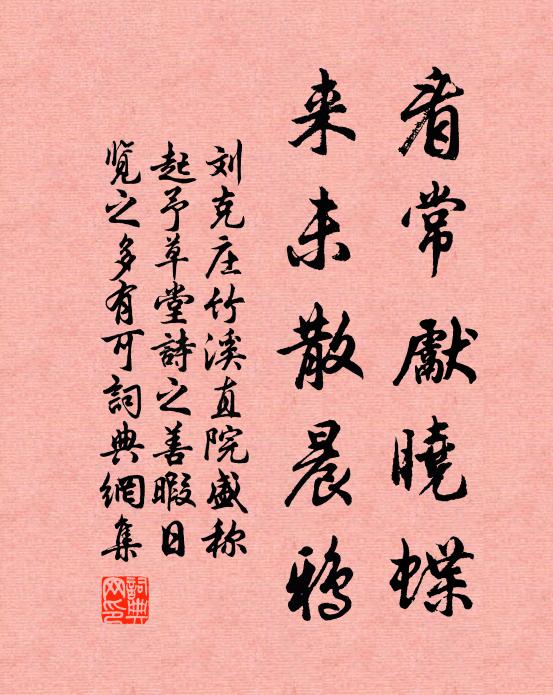 看常獻曉蝶
来未散晨鴉
刘克庄竹溪直院盛称
起予草堂詩之善暇日
览之多有可詞典網集
詞典网印